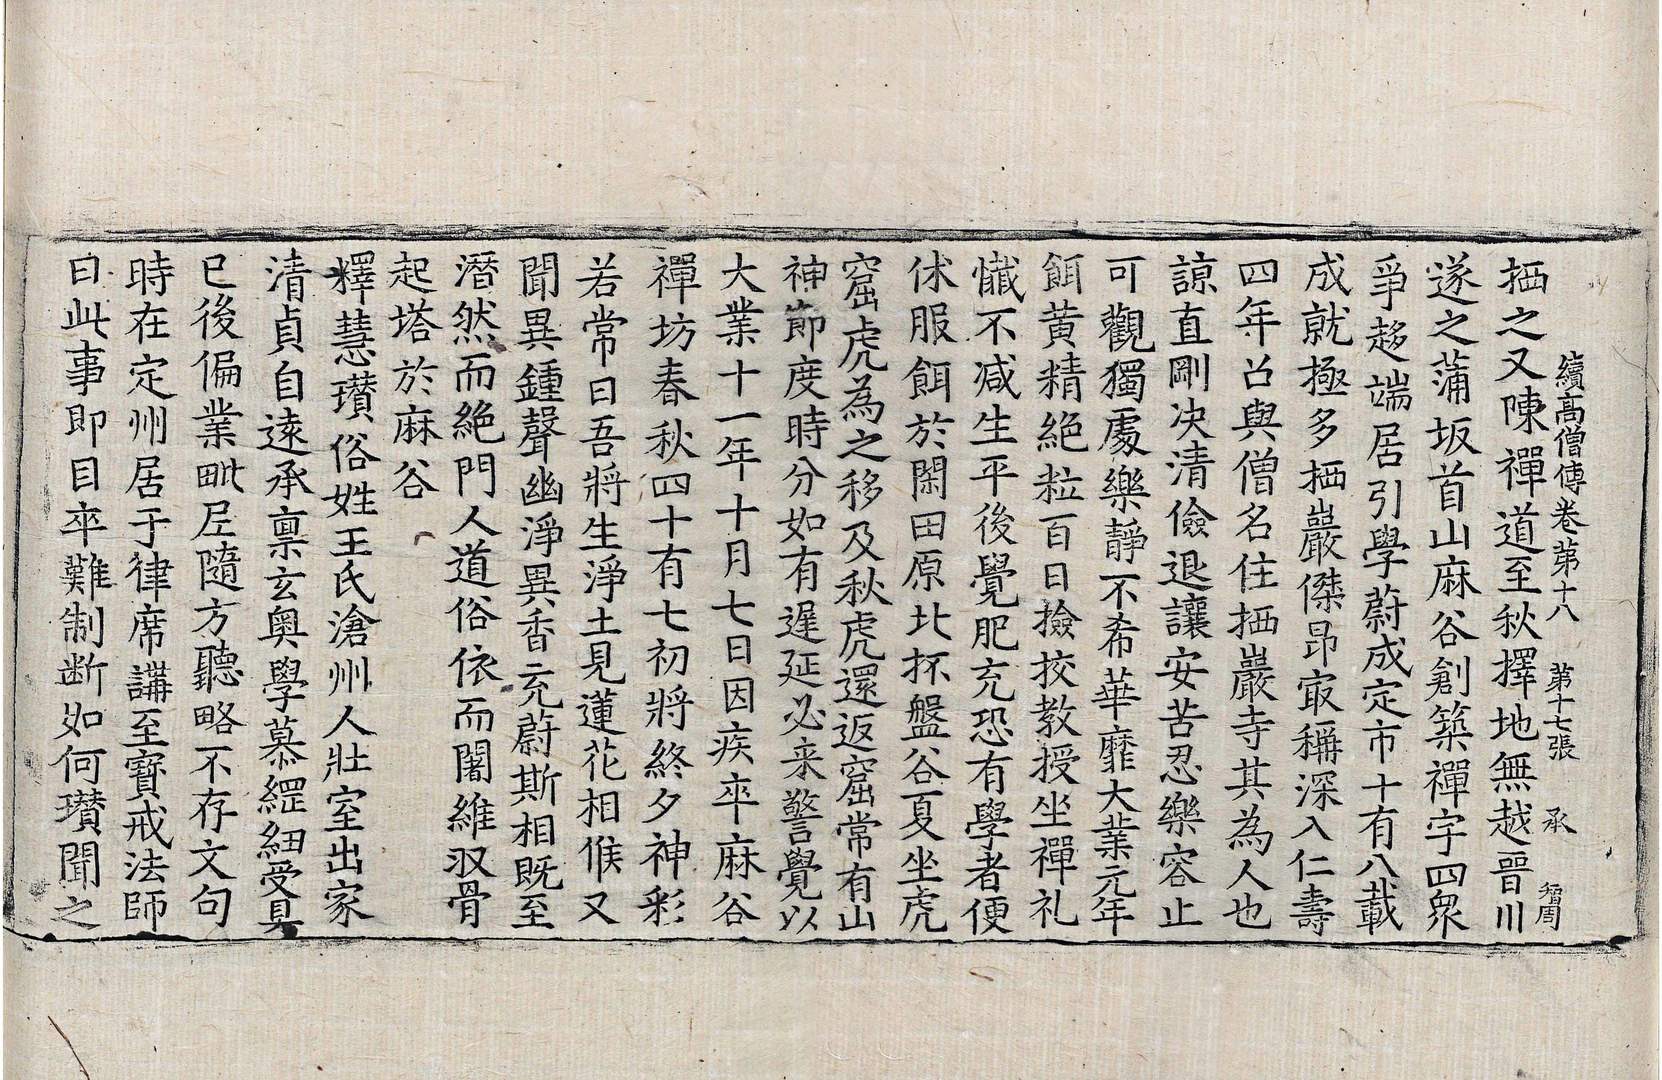 續高僧傳卷第十八 第十七張 承
栖之又陳禪道至秋擇地無越晉川
遂之蒲坂首山麻谷創築禪宇四衆
爭趍端居引學蔚成定市十有八載
成就極多栖巖傑昂㝡稱深入仁壽
四年召與僧名住栖巖寺其為人也
諒直剛决清儉退讓安苦忍樂容止
可觀獨處樂靜不希華靡大業元年
餌黃精絕粒百日撿挍教授坐禪礼
懺不减生平後覺肥充恐有學者便
休服餌於閑田原北杯盤谷夏坐虎
窟虎為之移及秋虎還返窟常有山
神節度時分如有遲延必来警覺以
大業十一年十月七日因疾卒麻谷
禪坊春秋四十有七初將終夕神彩
若常曰吾將生淨土見蓮花相候又
聞異鍾聲幽淨異香充蔚斯相既至
潛然而絕門人道俗依而闍維収骨
起塔於麻谷
釋慧瓚俗姓王氏滄州人壯室出家
清貞自遠承禀玄奧學慕綱紐受具
已後偏業毗尼隨方聽略不存文句
時在定州居于律席講至寶戒法師
曰此事即目卒難制断如何瓚聞之